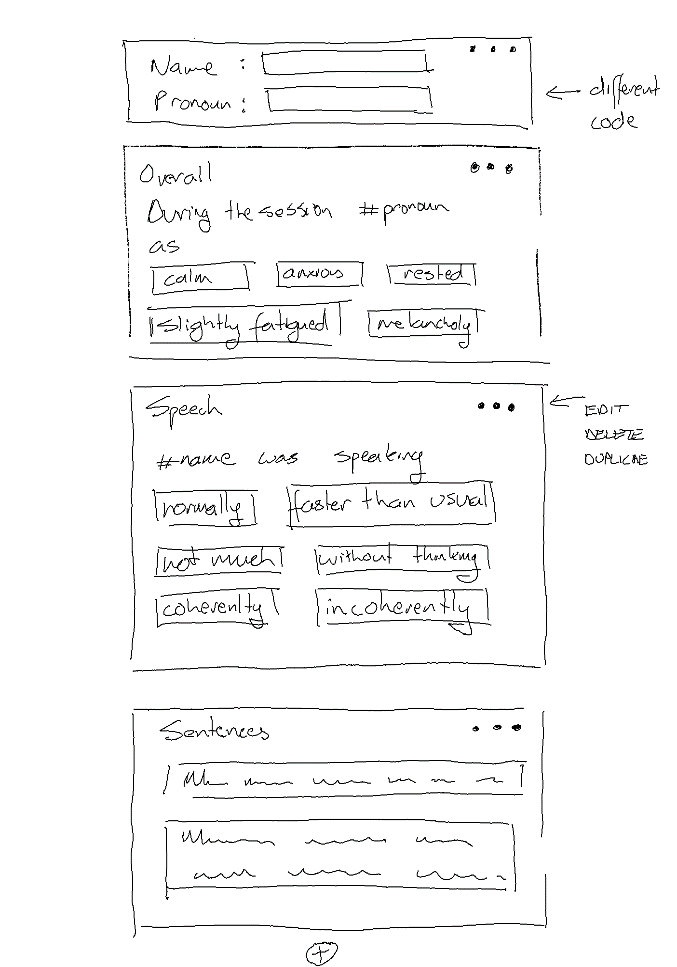 Name :
Pronoun :
← different
code
Overall
During the session #pronoun
as
calm anxious rested
slightly fatigued melancholy
Speech
← EDIT
DELETE
DUPLICAE
#name was speaking
normally faster than usual
not much without thinking
coherenlty incoherently
Sentences
+